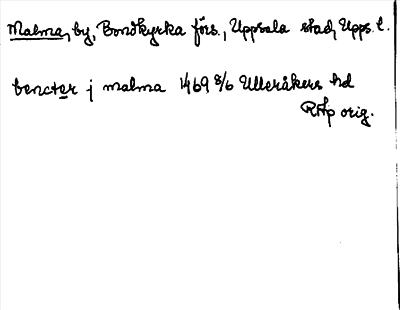 Malma, by, Bondkyrka förs., Uppsala stad, Upps. l.
bencter j malma 1469 8/6 Ulleråkers hd
RAp orig.